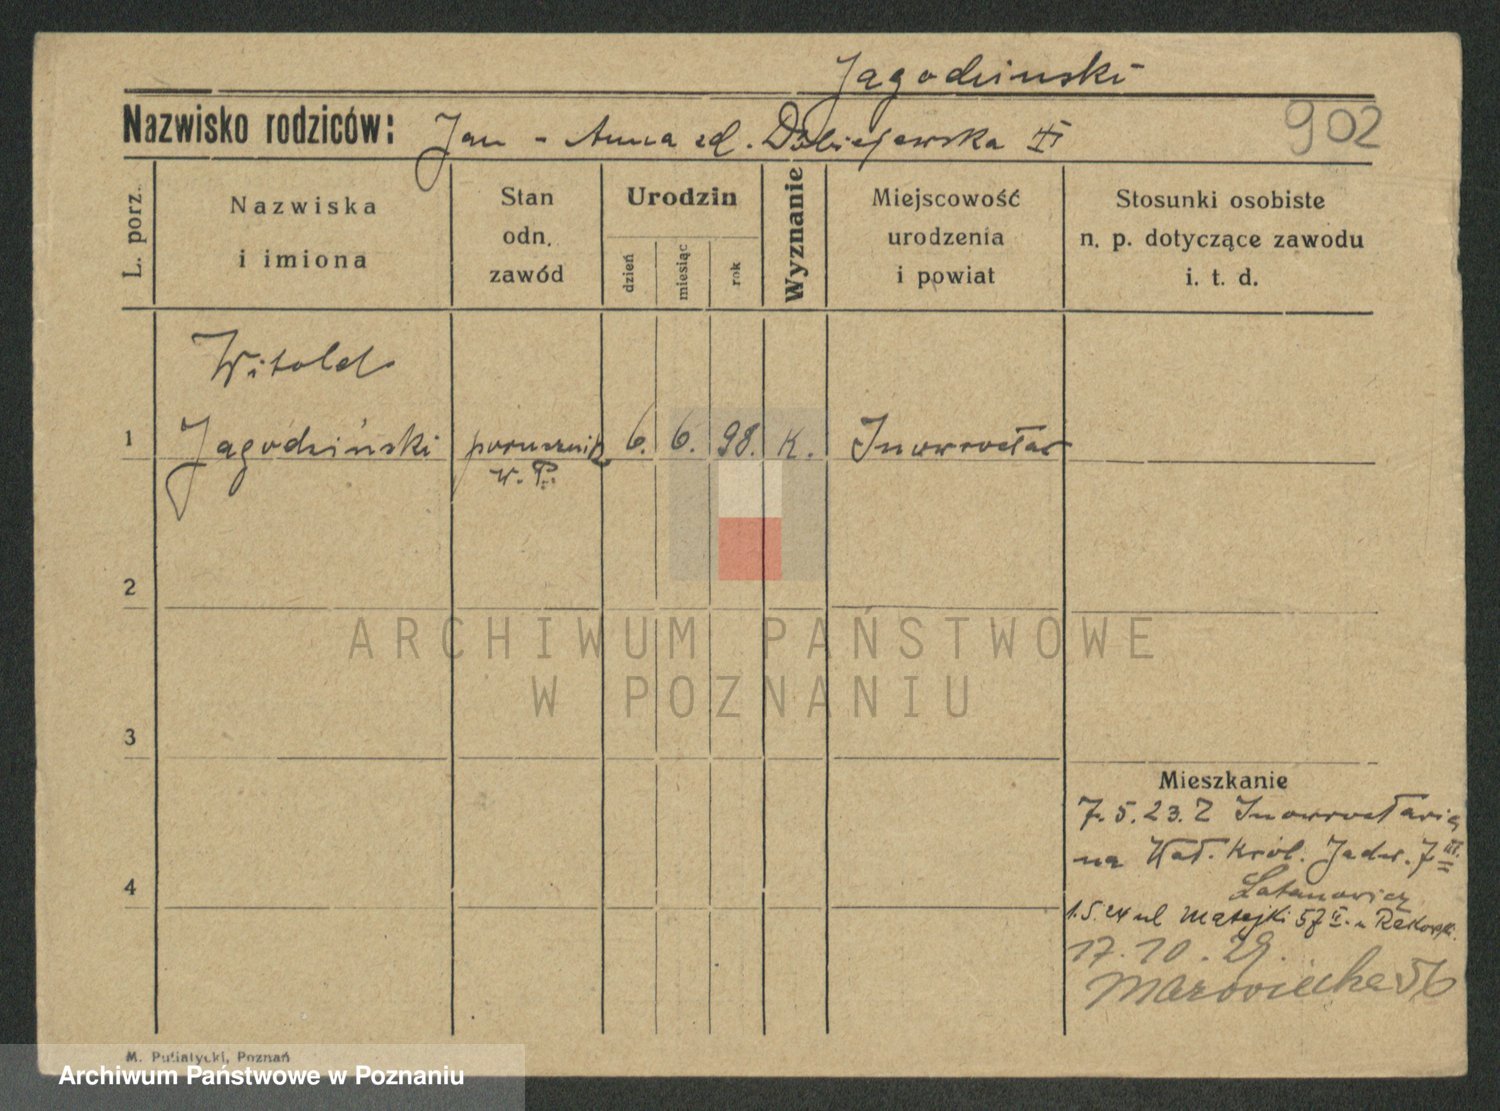 Jagodzinski
Nazwisko rodziców: Jan - Anna zd.
902
L. porz.
Nazwiska
i imiona
Stan
odn.
zawód
Urodzin
dzień
miesiąc
rok
Wyznanie
Miejscowość
urodzenia
i powiat
Stosunki osobiste
n. p. dotyczące zawodu
i. t. d.
Witold
1 Jagodziński porucznik 6. 6. 98. K. Inowrocław
w. P.
2
ARCHIWUM PAŃSTWOWE
W POZNANIU
3
Mieszkanie
7.5.23. Z Inowrocławia
na Wał. Król. Jadw. 7 III.
4
Latanowicz
1.5.24 ul Matejki 57 II.
17.10.29.
Mazowiecka 56
M. Putiatycki, Poznań
Archiwum Państwowe w Poznaniu